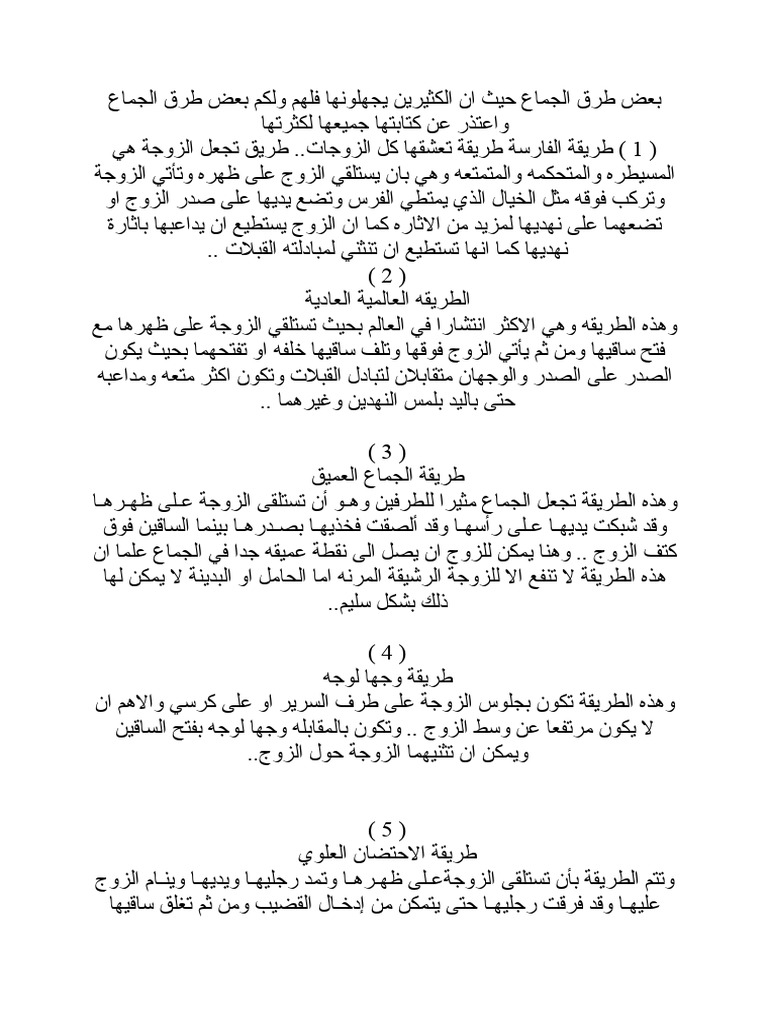 بعض طرق الجماع حيث ان الكثيرين يجهلونها فلهم ولكم بعض طرق الجماع
واعتذر عن كتابتها جميعها لكثرتها
( 1 ) طريقة الفارسة طريقة تعشقها كل الزوجات.. طريق تجعل الزوجة هي
المسيطره والمتحكمه والمتمتعه وهي بان يستلقي الزوج على ظهره وتأتي الزوجة
وتركب فوقه مثل الخيال الذي يمتطي الفرس وتضع يديها على صدر الزوج او
تضعهما على نهديها لمزيد من الاثاره كما ان الزوج يستطيع ان يداعبها باثارة
نهديها كما انها تستطيع ان تنثني لمبادلته القبلات ..
( 2 )
الطريقه العالمية العادية
وهذه الطريقه وهي الاكثر انتشارا في العالم بحيث تستلقي الزوجة على ظهرها مع
فتح ساقيها ومن ثم يأتي الزوج فوقها وتلف ساقيها خلفه او تفتحهما بحيث يكون
الصدر على الصدر والوجهان متقابلان لتبادل القبلات وتكون اكثر متعه ومداعبه
حتى باليد بلمس النهدين وغيرهما ..
( 3 )
طريقة الجماع العميق
وهذه الطريقة تجعل الجماع مثيرا للطرفين وهـو أن تستلقى الزوجة عـلـى ظهـرهـا
وقد شبكت يديهـا عـلـى رأسهـا وقد ألصقت فخذيهـا بصـدرهـا بينما الساقين فوق
كتف الزوج .. وهنا يمكن للزوج ان يصل الى نقطة عميقه جدا في الجماع علما ان
هذه الطريقة لا تنفع الا للزوجة الرشيقة المرنه اما الحامل او البدينة لا يمكن لها
ذلك بشكل سليم..
( 4 )
طريقة وجها لوجه
وهذه الطريقة تكون بجلوس الزوجة على طرف السرير او على كرسي والاهم ان
لا يكون مرتفعا عن وسط الزوج .. وتكون بالمقابله وجها لوجه بفتح الساقين
ويمكن ان تثنيهما الزوجة حول الزوج..
( 5 )
طريقة الاحتضان العلوي
وتتم الطريقة بأن تستلقى الزوجةعـلـى ظهـرهـا وتمد رجليهـا ويديهـا وينـام الزوج
عليهـا وقد فرقت رجليهـا حتى يتمكن من إدخـال القضيب ومن ثم تغلق ساقيها